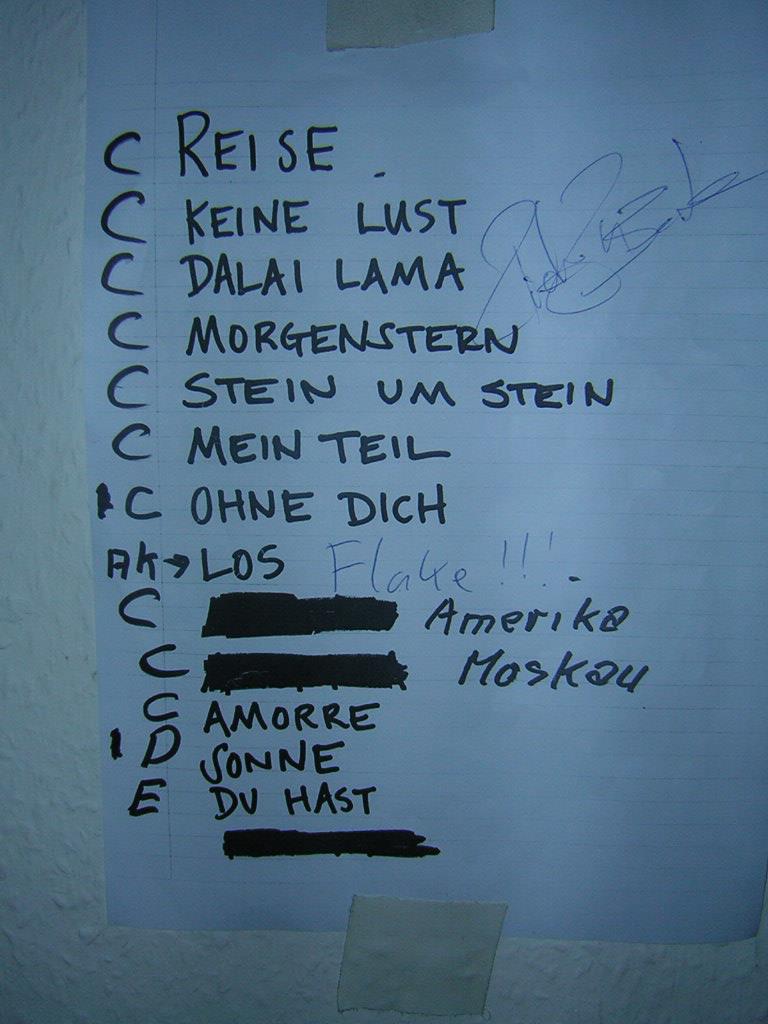 C REISE
C KEINE LUST
C DALAI LAMA
C MORGENSTERN
C STEIN UM STEIN
C MEIN TEIL
C OHNE DICH
AK→LOS Flake!!!
C Amerika
C Moskau
C AMORRE
D SONNE
E DU HAST